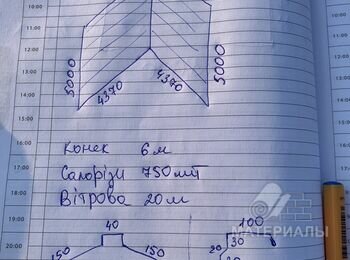 10:00
11:00
12:00
13:00
14:00
15:00
16:00
17:00
18:00
19:00
20:00
5000
4370
4370
5000
Конек 6 м
Саморізи 750 шт
Вітрова 20 м
МАТЕРИАЛЫ
40
150
150
100
30
20